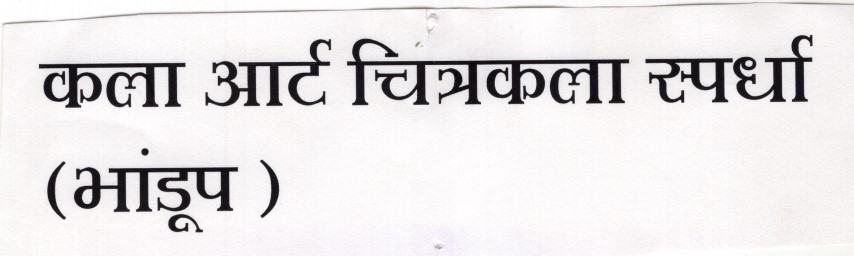 कला आर्ट चित्रकला स्पर्धा
(भांडूप )